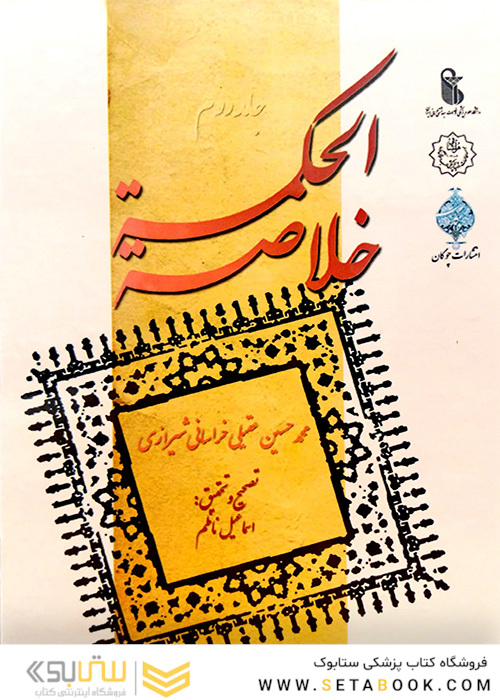 جلد دوم
الحکمة
خلاصة
انتشارات چوگان
محمد حسین عقیلی خراسانی شیرازی
تصحیح و تحقیق:
اسماعیل ناظم
فروشگاه کتاب پزشکی ستابوک
WWW.SETABOOK.COM
ستابوک
فروشگاه اینترنتی کتاب